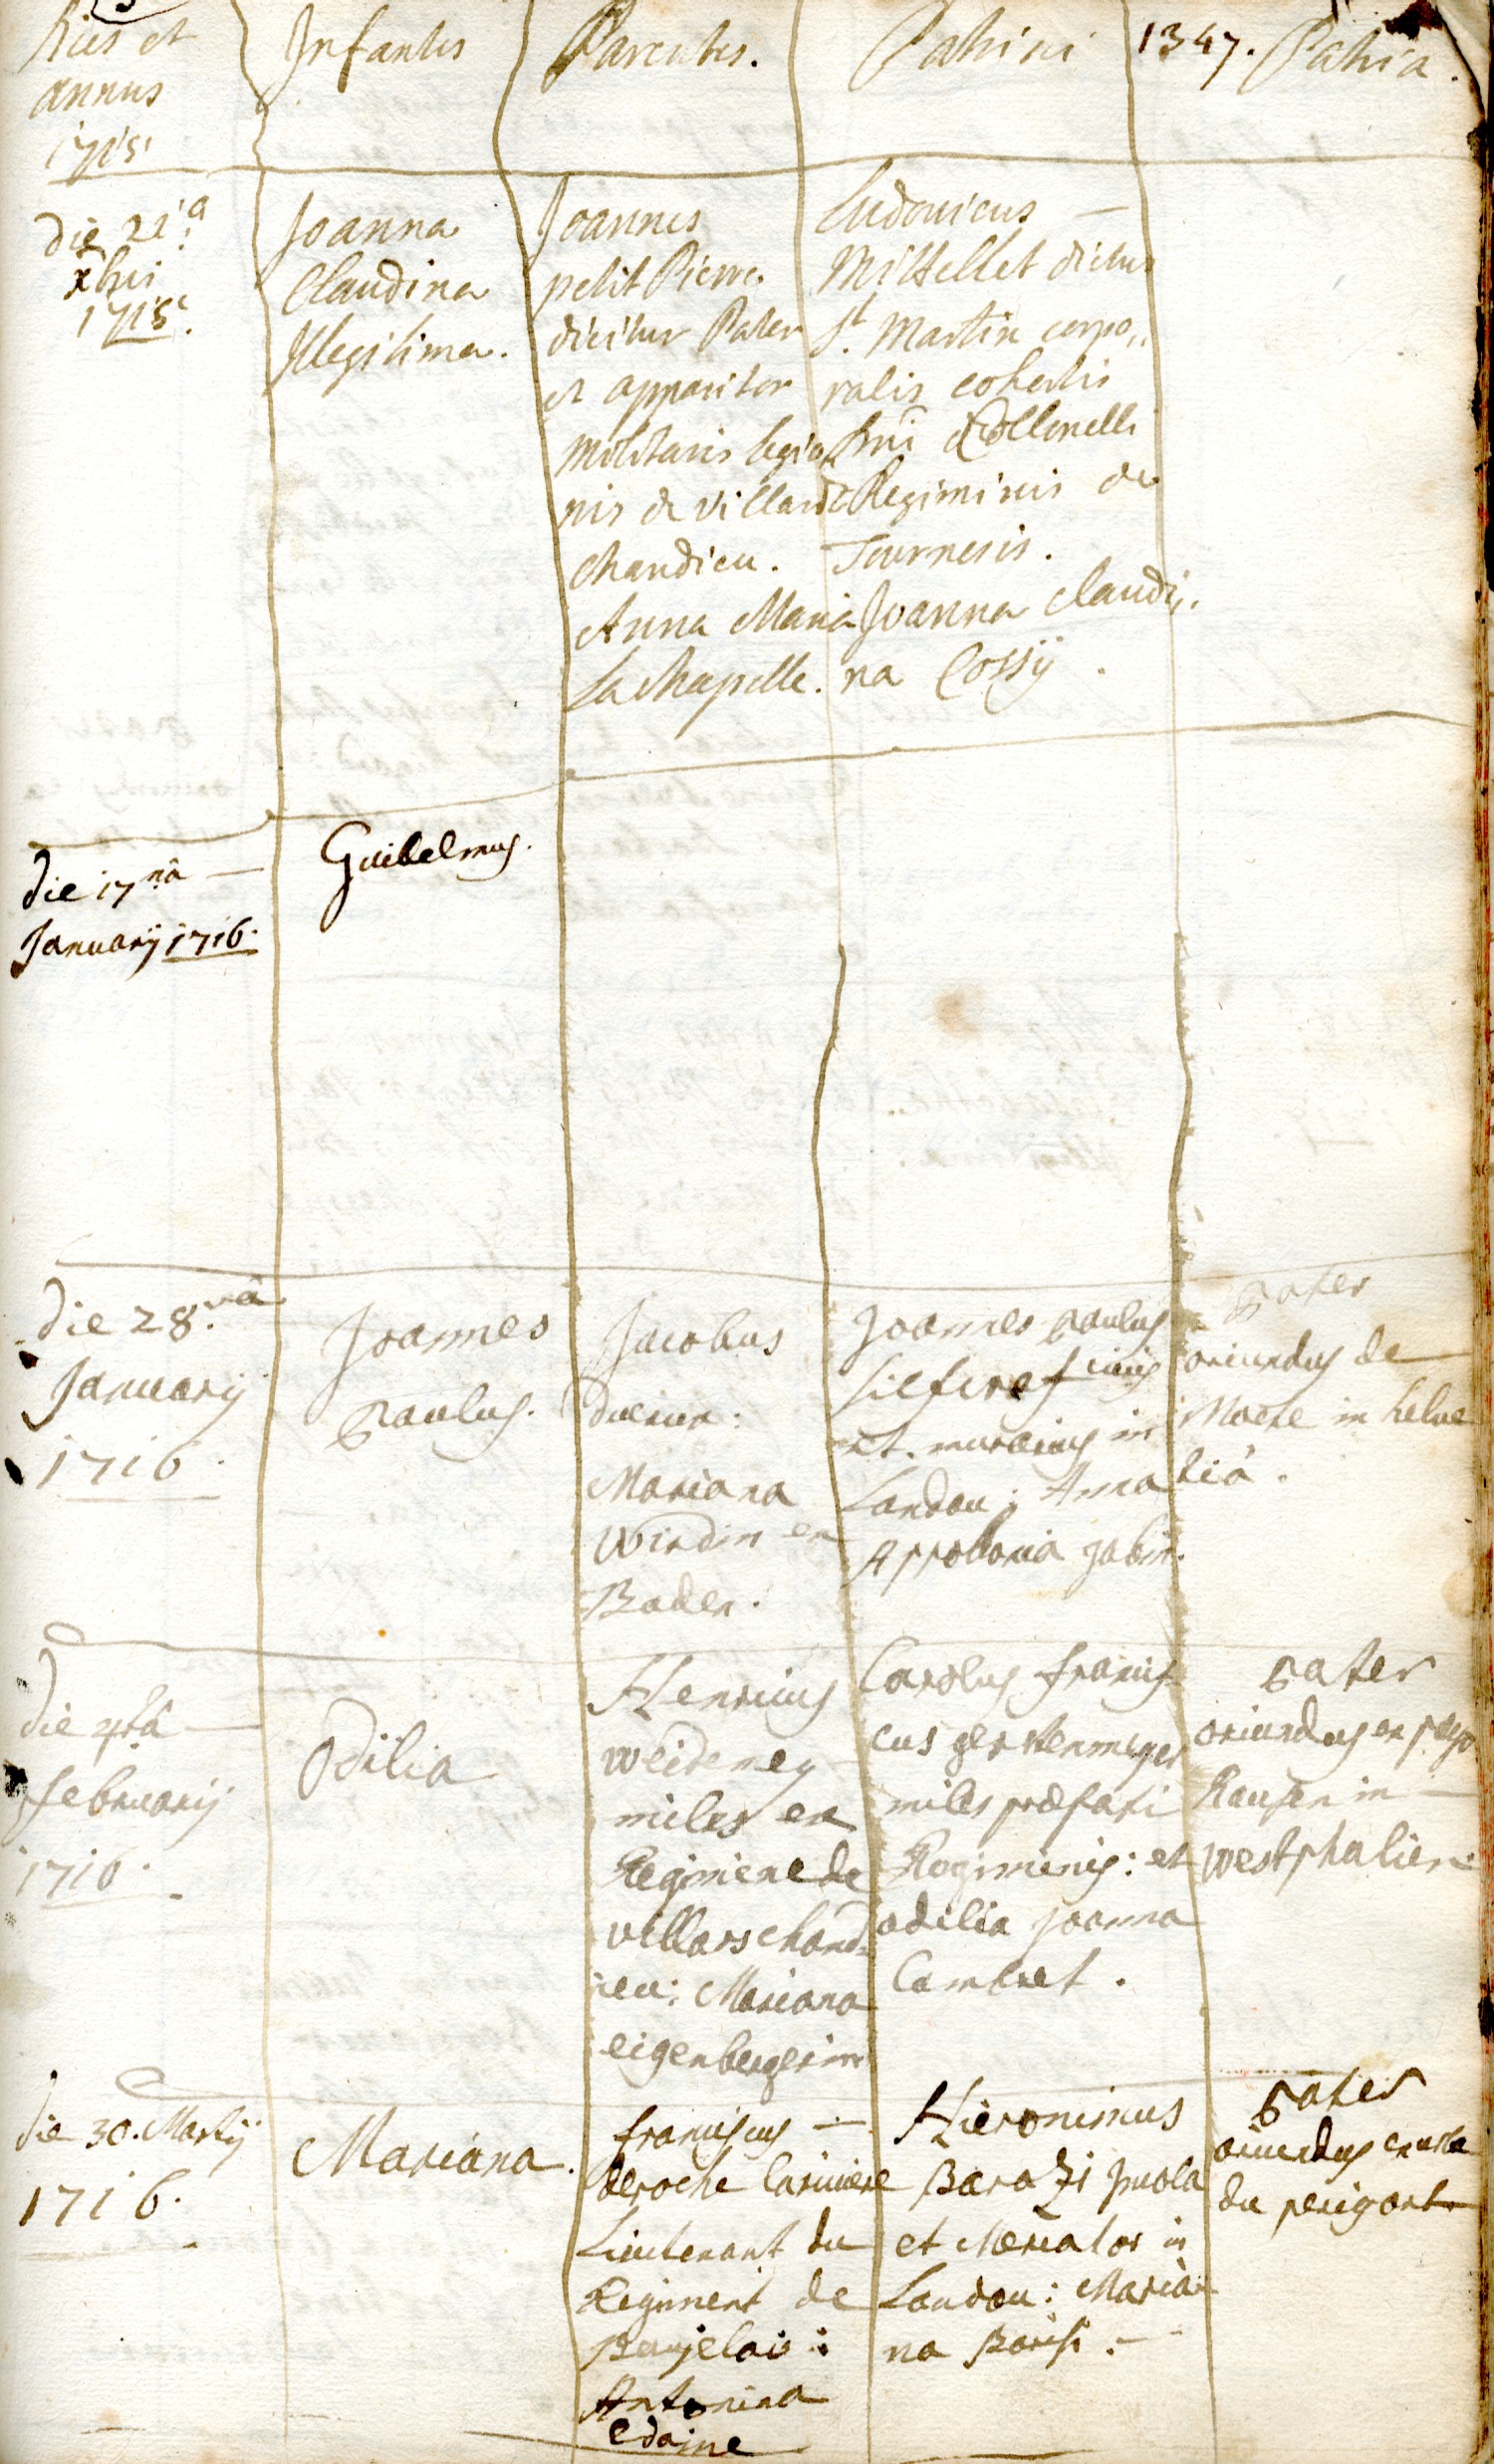 Dies et annus 1715
Infantes
Parentes.
Patrini
1347. Patria.
die 21.a
xbris
1715.
Joanna
Claudina
Illegitima.
Joannes
petit Pierre
dicitur Pater
et apparitor
militaris legio
nis de villard
Chandieu.
Anna Maria
La Chapelle.
Ludovicus —
Mittellet dictus
St. Martin corpo,,
ralis cohortis
Dni Collonelli
Regiminis de
Tournesis.
Joanna Claudi,
na Cossÿ.
die 17.nâ —
Januarÿ 1716.
Guilelmus.
die 28.vâ
Januarÿ
1716.
Joannes
Paulus.
Jacobus
Mariana
Windin en
Baden.
Joannes Paulus
in
Landau: Anna
Appolonia
Pater
oriundus de
in helve
tiâ.
die 4tâ —
februarÿ
1716.
Odilia
Henricus
Weidneÿ
miles ex
Regimine de
villars chand=
ieu: Mariana
eigenbergerin
Carolus francis
cus gerstenmeyer
miles præfati
Regiminis: et
odilia joanna
Camret.
Pater
oriundus ex pago
Hausen in —
westphalien.
die 30. Martÿ
1716.
Mariana.
franciscus —
deroche
Lieutenant du
Regiment de
Baujelois:
Antonina
edaine
Hieronimus
Barazi
et Mercator in
Landau: Maria
na Barisi. —
Pater
oriundus ex
du perigort